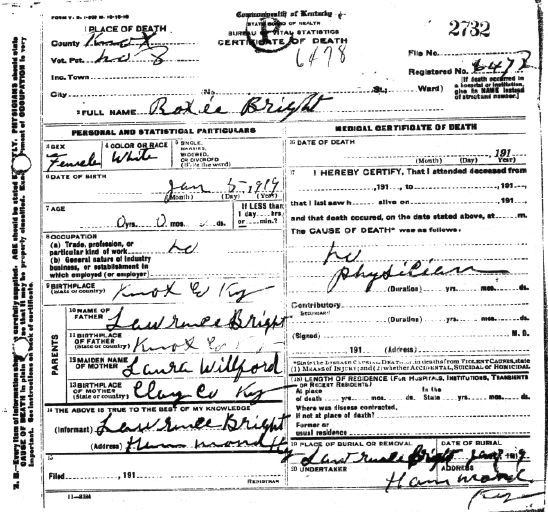 FORM V. S. 1-
Commonwealth of Kentucky
STATE BOARD OF HEALTH
BUREAU VITAL STATISTICS
CERTIFICATE OF DEATH
2732
6478
1 PLACE OF DEATH
County Knox
Vot. Pct. No 3
Inc. Town
City
No.
St.,
Ward)
File No.
Registered No. 6478
[If death occurred in a hospital or institution, give its NAME instead of street and number.]
2 FULL NAME Roxie Bright
PERSONAL AND STATISTICAL PARTICULARS
3 SEX
Female
4 COLOR OR RACE
White
5 SINGLE, MARRIED, WIDOWED, OR DIVORCED
(Write the word)
6 DATE OF BIRTH
Jan 5 1919
(Month) (Day) (Year)
7 AGE
0 yrs. 0 mos. ds.
If LESS than
1 day....hrs
or....min.?
8 OCCUPATION
(a) Trade, profession, or
particular kind of work no
(b) General nature of industry
business, or establishment in
which employed (or employer)
9 BIRTHPLACE
(State or country) Knox Co Ky
PARENTS
10 NAME OF
FATHER Lawrence Bright
11 BIRTHPLACE
OF FATHER
(State or country) Knox Co
12 MAIDEN NAME
OF MOTHER Laura Willford
13 BIRTHPLACE
OF MOTHER
(State or country) Clay Co Ky
14 THE ABOVE IS TRUE TO THE BEST OF MY KNOWLEDGE
(Informant) Lawrence Bright
(Address) Hammond Ky
15
Filed , 191
REGISTRAR
MEDICAL CERTIFICATE OF DEATH
16 DATE OF DEATH
, 191
(Month) (Day) Year)
17
I HEREBY CERTIFY, That I attended deceased from
, 191 , to , 191 ,
that I last saw h alive on , 191 ,
and that death occured, on the date stated above, at m.
The CAUSE OF DEATH* was as follows:
no
physician
(Duration) yrs. mos. ds.
Contributory
(Duration) yrs. mos. ds.
(Signed) M. D.
191 (Address)
*State the DISEASE CAUSING DEATH, or in deaths from VIOLENT CAUSES, state
(1) MEANS OF INJURY; and (2) whether ACCIDENTAL, SUICIDAL OR HOMICIDAL
18 LENGTH OF RESIDENCE (FOR HOSPITALS, INSTITUTIONS, TRANSIENTS
OR RECENT RESIDENTS)
At place
of death yrs. mos. ds.
In the
State yrs. mos. ds.
Where was disease contracted,
if not at place of death?
Former or
usual residence
19 PLACE OF BURIAL OR REMOVAL
Lawrence Bright
DATE OF BURIAL
1919
20 UNDERTAKER
ADDRESS
Hammond
Ky